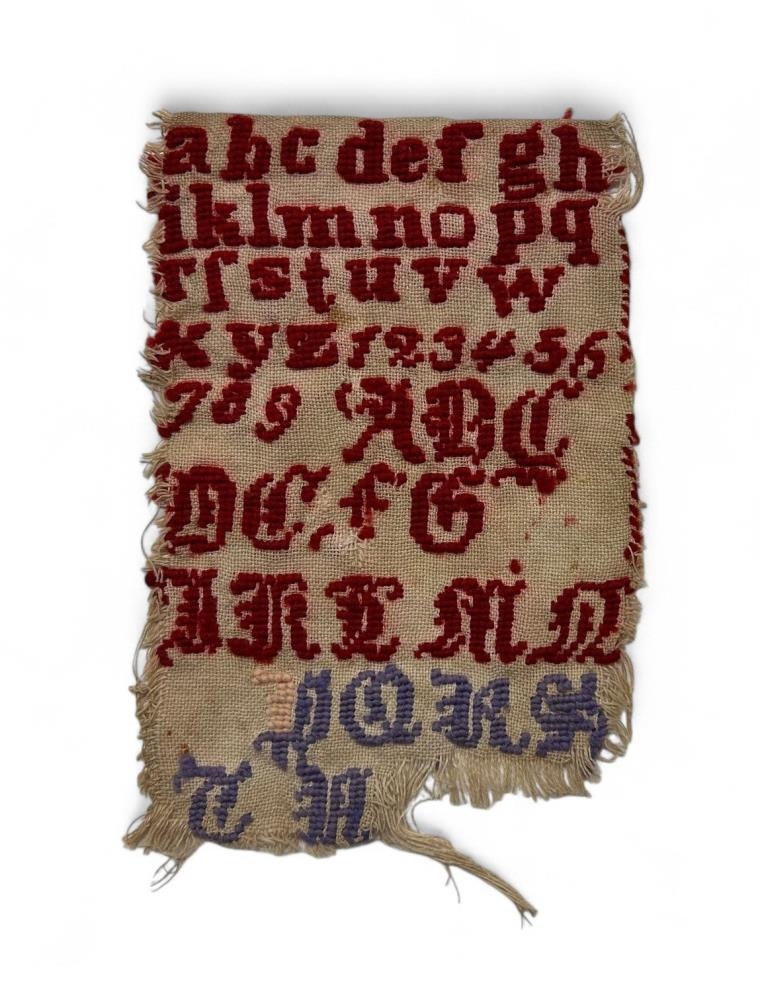 abc def gh
iklmnopq
rſstuvw
xyz123456
789 ABC
DEFG
IKLMN
PQRS
TU